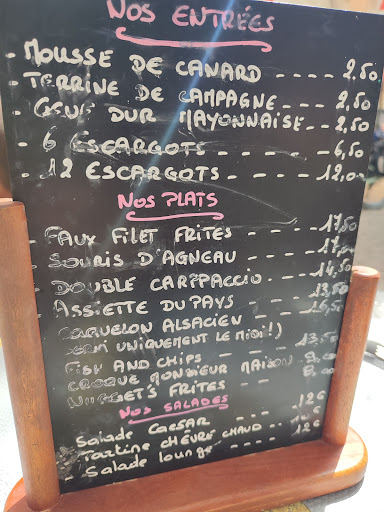 NOS ENTRÉES
- MOUSSE DE CANARD ---- 2,50
- TERRINE DE CAMPAGNE --- 2,50
- OEUF DUR MAYONNAISE -- 2,50
- 6 ESCARGOTS ----- 6,50
- 12 ESCARGOTS ----- 12,00
NOS PLATS
- FAUX FILET FRITES ---- 17,50
- SOURIS D'AGNEAU ----
- DOUBLE CARPACCIO ---- 14,50
- ASSIETTE DU PAYS ---- 13,50
CAQUELON ALSACIEN
UNIQUEMENT LE MIDI!)
FISH AND CHIPS ---- 13,50
CROQUE MONSIEUR MAISON
NUGGETS FRITES --
NOS SALADES
Salade CAESAR --- 12€
Tartine CHÈVRE CHAUD ---
- Salade lounge --- 12€